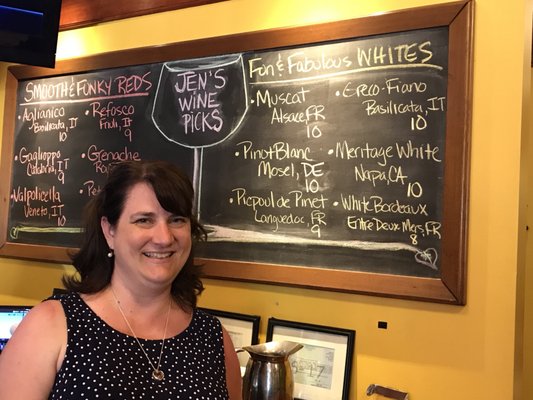 SMOOTH & FUNKY REDS
Aglianico
Basilicata, IT
10
Refosco
Friuli, IT
9
Gaglioppo
Calabria, IT
9
Grenache
Valpolicella
Veneto, IT
10
Pet
JEN'S
WINE
PICKS
Fun & Fabulous WHITES
Muscat
Alsace, FR
10
Pinot Blanc
Mosel, DE
10
Picpoul de Pinet
Languedoc, FR
9
Ereco-Fiano
Basilicata, IT
10
Meritage White
Napa, CA
10
White Bordeaux
Entre Deux Mers, FR
8